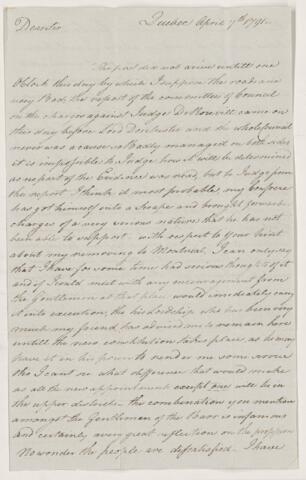 Quebec April 7th 1791
Dear Sir
The post did not arive untill one
Oclock this day by which I suppose the roads are
very Bad, the report of the committee of Council
on the charges against Judge DeRouvill came on
this day before Lord Dorchester and the whole found
never was a cause so Badly managed on both sides
it is impossible to Judge how it will be determined
as no part of the Evidence was read, but to Judge from
the report I think it most probable my confrere
has got himself into a scrape and brought forward
charges of a very serious nature that he has not
been able to support - with respect to your hint
about my removing to Montreal, I can only say
that I have for some time had serious thoughts of it
and if I could meet with any encouragement from
the Gentlemen at that place would imediately carry
it into execution, tho his Lordship who has been very
much my friend has advised me to remain here
untill the new constitution takes place, as he may
have it in his power to render me some service
tho I cant see what difference that would make
as all the new appointments except one will be in
the upper districts. the combination you mention
amongst the Gentlemen of the Barr is infamous
and certainly a very great reflection on the profession
No wonder the people are dissatisfied. I have